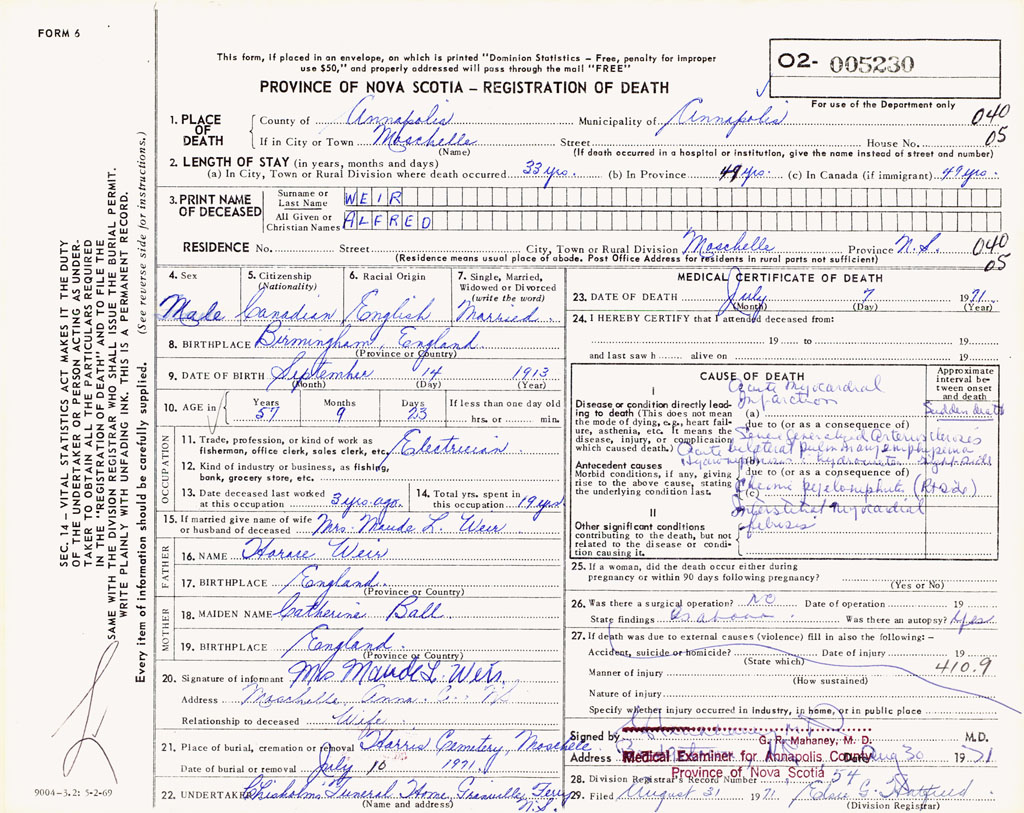 FORM 6
This form, if placed in an envelope, on which is printed "Dominion Statistics – Free, penalty for improper
use $50," and properly addressed will pass through the mail "FREE"
O2- 005230
PROVINCE OF NOVA SCOTIA – REGISTRATION OF DEATH
For use of the Department only
1. PLACE OF DEATH
County of Annapolis Municipality of Annapolis 040
If in City or Town Moschelle Street House No. 05
(Name) (If death occurred in a hospital or institution, give the name instead of street and number)
2. LENGTH OF STAY (in years, months and days)
(a) In City, Town or Rural Division where death occurred 33 yrs. (b) In Province 49 yrs. (c) In Canada (if immigrant) 49 yrs.
3. PRINT NAME OF DECEASED
Surname or Last Name WEIR
All Given or Christian Names ALFRED
RESIDENCE No. Street City, Town or Rural Division Moschelle Province N.S. 040
(Residence means usual place of abode. Post Office Address for residents in rural parts not sufficient) 05
4. Sex Male
5. Citizenship (Nationality) Canadian
6. Racial Origin English
7. Single, Married, Widowed or Divorced (write the word) Married
8. BIRTHPLACE Birmingham, England
(Province or Country)
9. DATE OF BIRTH September 14 1913
(Month) (Day) (Year)
10. AGE in Years Months Days If less than one day old
57 9 23 hrs. or min.
OCCUPATION
11. Trade, profession, or kind of work as
fisherman, office clerk, sales clerk, etc. Electrician
12. Kind of industry or business, as fishing,
bank, grocery store, etc.
13. Date deceased last worked at this occupation 3 yrs. ago.
14. Total yrs. spent in this occupation 19 yrs.
15. If married give name of wife
or husband of deceased Mrs. Maude L. Weir
FATHER
16. NAME Horace Weir
17. BIRTHPLACE England
(Province or Country)
MOTHER
18. MAIDEN NAME Catherine Ball
19. BIRTHPLACE England
(Province or Country)
20. Signature of informant Mrs Maude L. Weir
Address Moschelle Anna. Co. N.S.
Relationship to deceased Wife
21. Place of burial, cremation or removal Harris Cemetery, Moschelle
Date of burial or removal July 10 1971.
22. UNDERTAKER Chisholms Funeral Home, Granville Ferry N.S.
(Name and address)
MEDICAL CERTIFICATE OF DEATH
23. DATE OF DEATH July 7 1971
(Month) (Day) (Year)
24. I HEREBY CERTIFY that I attended deceased from:
19 to 19
and last saw h alive on 19
CAUSE OF DEATH
Approximate interval between onset and death
I
Disease or condition directly leading to death (This does not mean the mode of dying, e.g., heart failure, asthenia, etc. It means the disease, injury, or complication which caused death.)
(a) Acute Myocardial Infarction
Sudden death
due to (or as a consequence of)
Severe Generalized Arteriosclerosis
Acute bilateral pulmonary emphysema
Antecedent causes
Morbid conditions, if any, giving rise to the above cause, stating the underlying condition last.
due to (or as a consequence of)
(c)
II
Interstitial myocardial fibrosis
Other significant conditions
contributing to the death, but not related to the disease or condition causing it.
25. If a woman, did the death occur either during
pregnancy or within 90 days following pregnancy?
(Yes or No)
26. Was there a surgical operation? NO Date of operation 19
State findings As above Was there an autopsy? Yes
27. If death was due to external causes (violence) fill in also the following: –
Accident, suicide or homicide? Date of injury 19
(State which) 410.9
Manner of injury
(How sustained)
Nature of injury
Specify whether injury occurred in industry, in home, or in public place
Signed by G. R. Mahaney, M. D. M.D.
Address Medical Examiner for Annapolis County Date Aug 30 1971
Province of Nova Scotia
28. Division Registrar's Record Number 54
29. Filed August 31 1971 Elsie G. Hatfield
(Division Registrar)
SEC. 14 – VITAL STATISTICS ACT MAKES IT THE DUTY
OF THE UNDERTAKER OR PERSON ACTING AS UNDER-
TAKER TO OBTAIN ALL THE PARTICULARS REQUIRED
IN THE "REGISTRATION OF DEATH" AND TO FILE THE
SAME WITH THE DIVISION REGISTRAR WHO SHALL ISSUE THE BURIAL PERMIT.
WRITE PLAINLY WITH UNFADING INK. THIS IS A PERMANENT RECORD.
Every item of information should be carefully supplied. (See reverse side for instructions.)
9004-3.2: 5-2-69